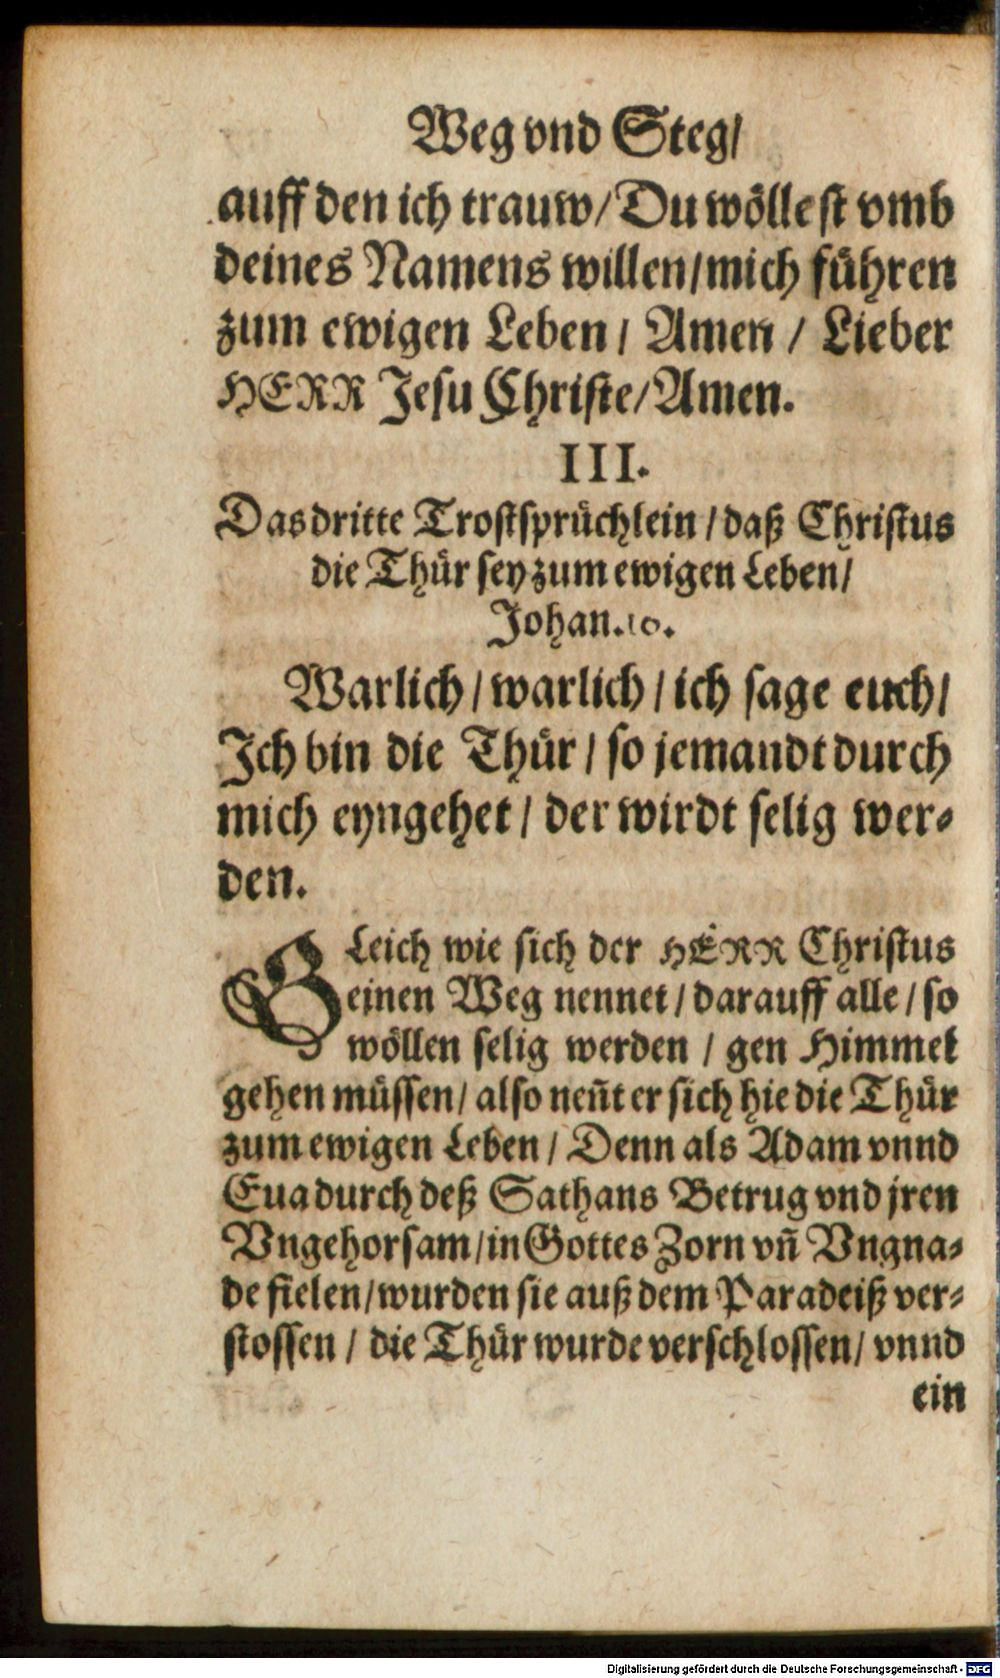 Weg vnd Steg/
auff den ich trauw/ Du wöllest vmb
deines Namens willen/ mich führen
zum ewigen Leben / Amen / Lieber
HERR Jesu Christe/ Amen.
III.
Das dritte Trostsprüchlein / daß Christus
die Thür sey zum ewigen Leben/
Johan. 10.
Warlich / warlich / ich sage euch/
Ich bin die Thür / so jemandt durch
mich eyngehet / der wirdt selig wer-
den.
GLeich wie sich der HERR Christus
einen Weg nennet / darauff alle / so
wöllen selig werden / gen Himmel
gehen müssen/ also neñt er sich hie die Thür
zum ewigen Leben / Denn als Adam vnnd
Eua durch deß Sathans Betrug vnd jren
Vngehorsam/ in Gottes Zorn vñ Vngna-
de fielen/ wurden sie auß dem Paradeiß ver-
stossen / die Thür wurde verschlossen/ vnnd
ein
Digitalisierung gefördert durch die Deutsche Forschungsgemeinschaft - DFG